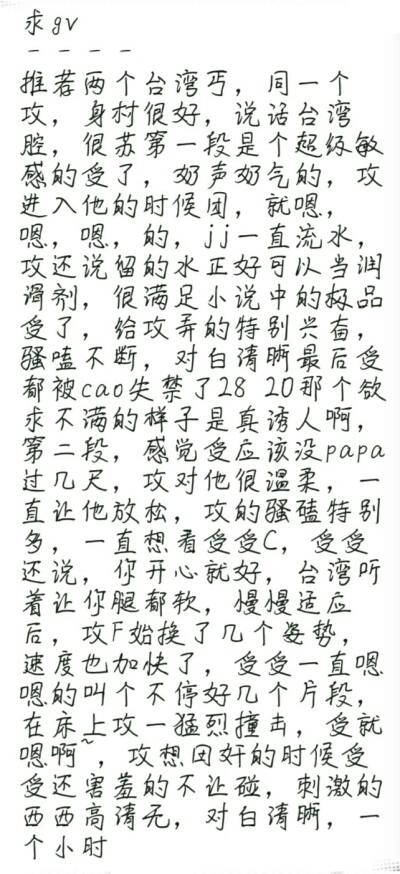 求gv
- - - -
推荐两个台湾丐，同一个
攻，身材很好，说话台湾
腔，很苏第一段是个超级敏
感的受了，奶声奶气的，攻
进入他的时候团，就嗯，
嗯，嗯，的，jj一直流水，
攻还说留的水正好可以当润
滑剂，很满足小说中的极品
受了，给攻弄的特别兴奋，
骚嗑不断，对白清晰最后受
都被cao失禁了28 20那个欲
求不满的样子是真诱人啊，
第二段，感觉受应该没papa
过几尺，攻对他很温柔，一
直让他放松，攻的骚磕特别
多，一直想看受受C，受受
还说，你开心就好，台湾听
着让你腿都软，慢慢适应
后，攻F始换了几个姿势，
速度也加快了，受受一直嗯
嗯的叫个不停好几个片段，
在床上攻一猛烈撞击，受就
嗯啊~，攻想囚奸的时候受
受还害羞的不让碰，刺激的
西西高清无，对白清晰，一
个小时